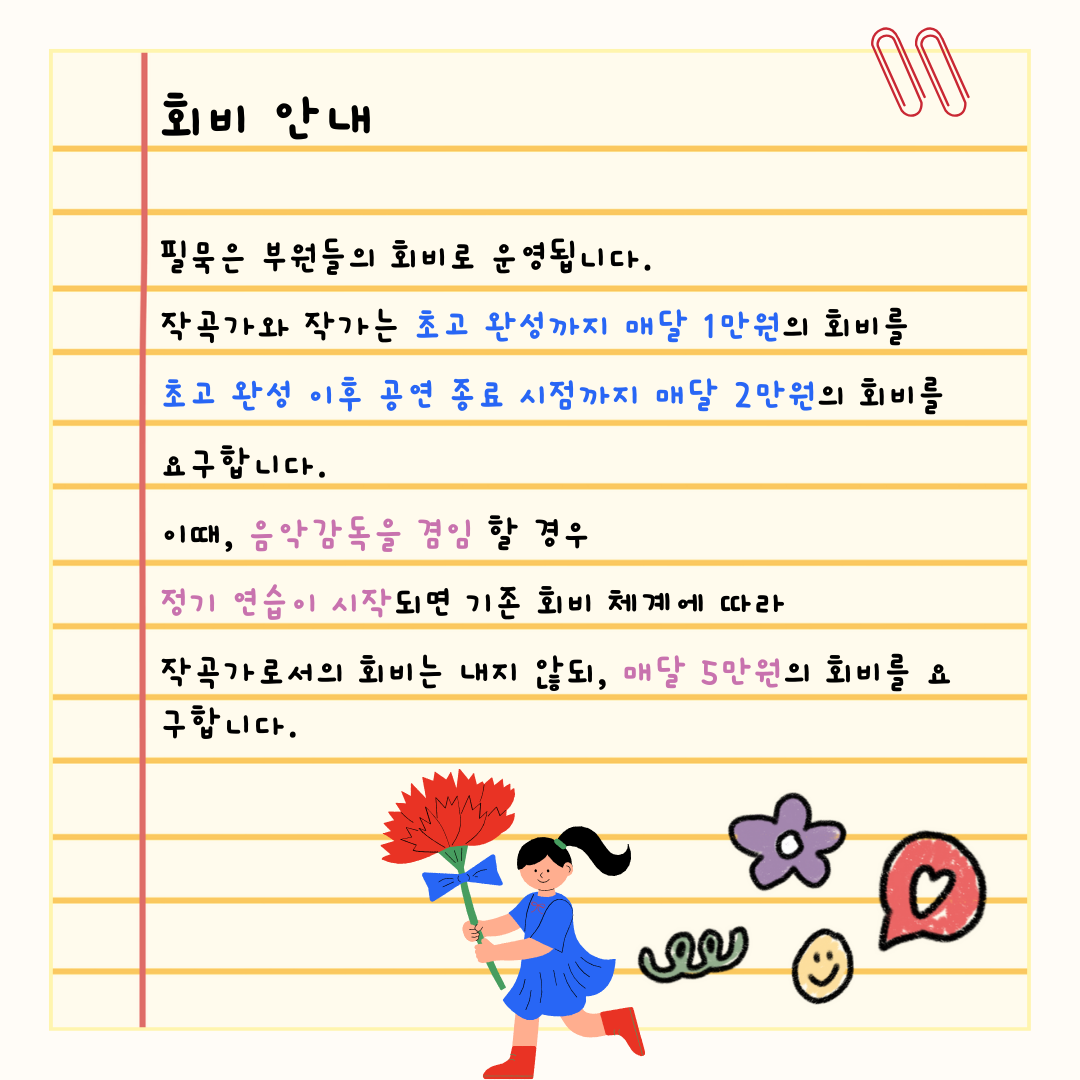 회비 안내
필묵은 부원들의 회비로 운영됩니다.
작곡가와 작가는 초고 완성까지 매달 1만원의 회비를
초고 완성 이후 공연 종료 시점까지 매달 2만원의 회비를
요구합니다.
이때, 음악감독을 겸임 할 경우
정기 연습이 시작되면 기존 회비 체계에 따라
작곡가로서의 회비는 내지 않되, 매달 5만원의 회비를 요
구합니다.